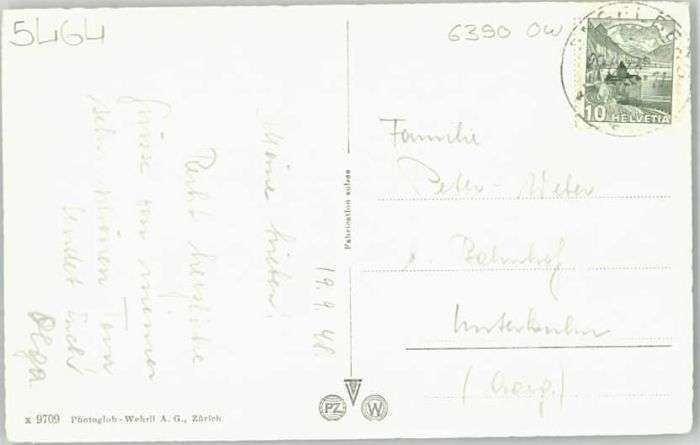 5464
6390 OW
10 HELVETIA
Meine Lieben!
Recht herzliche
Grüsse von meiner
sehr schönen Tour
sendet Euch
Olga
19.9.48.
Fabrication suisse
Familie
Peter-Weber
z. Bahnhof
Unterkulm
(Aarg.)
PZ W
x 9709 Photoglob-Wehrli A. G., Zürich